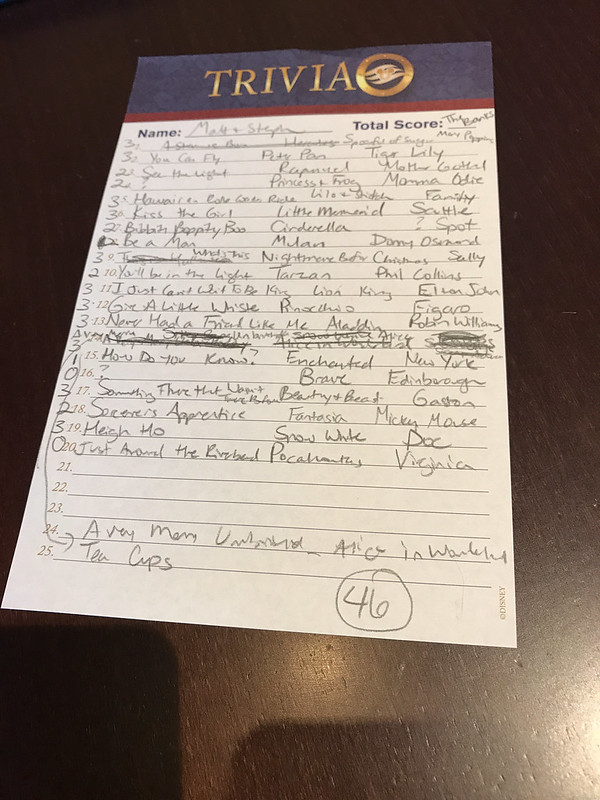 TRIVIA
Name: Matt + Steph Total Score: The Banks
3 1. Spoonful of Sugar Mary Poppins
3 2. You Can Fly Peter Pan Tiger Lily
2 3. See the Light Rapunzel Mother Gothel
2 4. ? Princess + Frog Momma Odie
3 5. Hawaiian Roller Coaster Ride Lilo + Stitch Family
3 6. Kiss the Girl Little Mermaid Scuttle
2 7. Bibbity Boppity Boo Cinderella ? Spot
Be a Man Mulan Donny Osmond
3 9. What's This Nightmare Before Christmas Sally
2 10. You'll be in the Light Tarzan Phil Collins
3 11. I Just Can't Wait To Be King Lion King Elton John
3 12. Give A Little Whistle Pinocchio Figaro
3 13. Never Had a Friend Like Me Aladdin Robin Williams
3 A very Merry Unbirthday Alice in
1 15. How Do You Know? Enchanted New York
0 16. ? Brave Edinborough
3 17. Something There That Wasn't There Before Beauty + Beast Gaston
2 18. Sorcerer's Apprentice Fantasia Mickey Mouse
3 19. Heigh Ho Snow White Doc
0 20. Just Around the Riverbend Pocahontas Virginia
21.
22.
23.
24. A very Merry Unbirthday - Alice in Wonderland
25. Tea Cups
46
©DISNEY